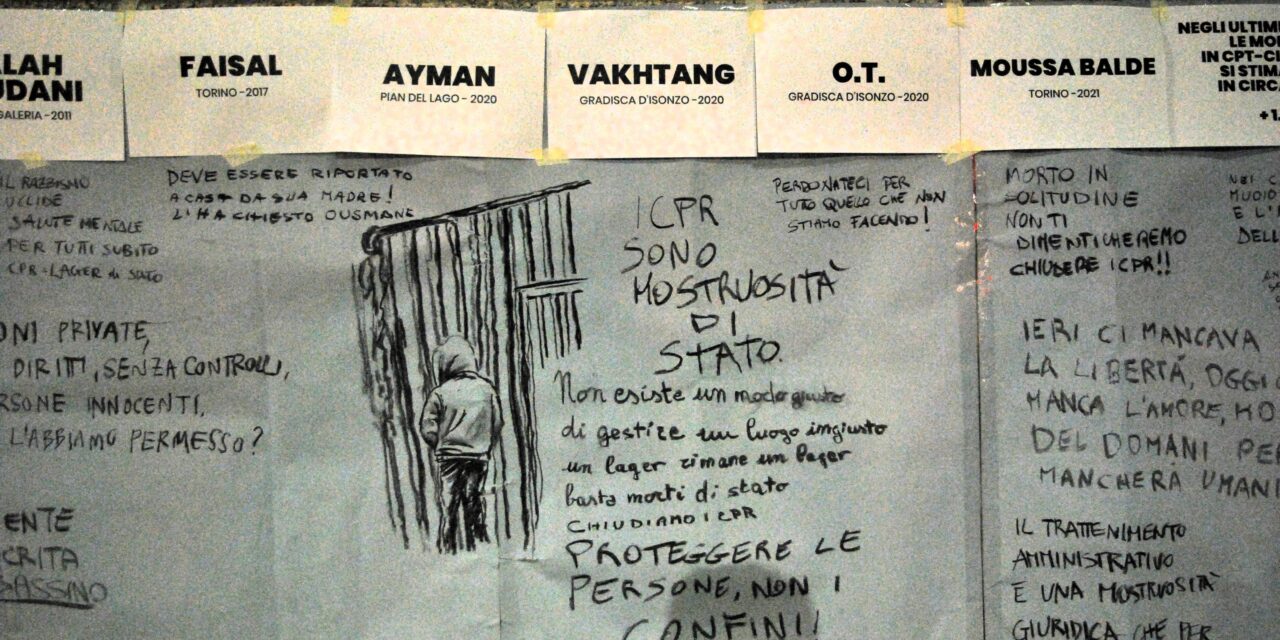 ALAH
UDANI
GALERIA - 2011
FAISAL
TORINO - 2017
AYMAN
PIAN DEL LAGO - 2020
VAKHTANG
GRADISCA D'ISONZO - 2020
O.T.
GRADISCA D'ISONZO - 2020
MOUSSA BALDE
TORINO - 2021
NEGLI ULTIMI
LE MOR
IN CPT-CI
SI STIMA
IN CIRCA
+1.
IL RAZZISMO
UCCIDE
SALUTE MENTALE
PER TUTTI SUBITO
CPR = LAGER di STATO
ONI PRIVATE,
DIRITTI, SENZA CONTROLLI,
RSONE INNOCENTI.
L'ABBIAMO PERMESSO?
ENTE
CRITA
ASSINO
DEVE ESSERE RIPORTATO
A CASA DA SUA MADRE!
L'HA CHIESTO OUSMANE
I CPR
SONO
MOSTRUOSITÀ
DI
STATO.
Non esiste un modo giusto
di gestire un luogo ingiusto
un lager rimane un lager
basta morti di stato
CHIUDIAMO I CPR
PROTEGGERE LE
PERSONE, NON I
CONFINI!
PERDONATECI PER
TUTO QUELLO CHE NON
STIAMO FACENDO!
MORTO IN
SOLITUDINE
NON TI
DIMENTICHEREMO
CHIUDERE I CPR!!
IERI CI MANCAVA
LA LIBERTÁ, OGGI
MANCA L'AMORE, HO
DEL DOMANI PE
MANCHERÀ UMANI
IL TRATTENIMENTO
AMMINISTRATIVO
È UNA MOSTRUOSITÀ
GIURIDICA CHE PER
NEI C
MUOIO
E L'I
DELL